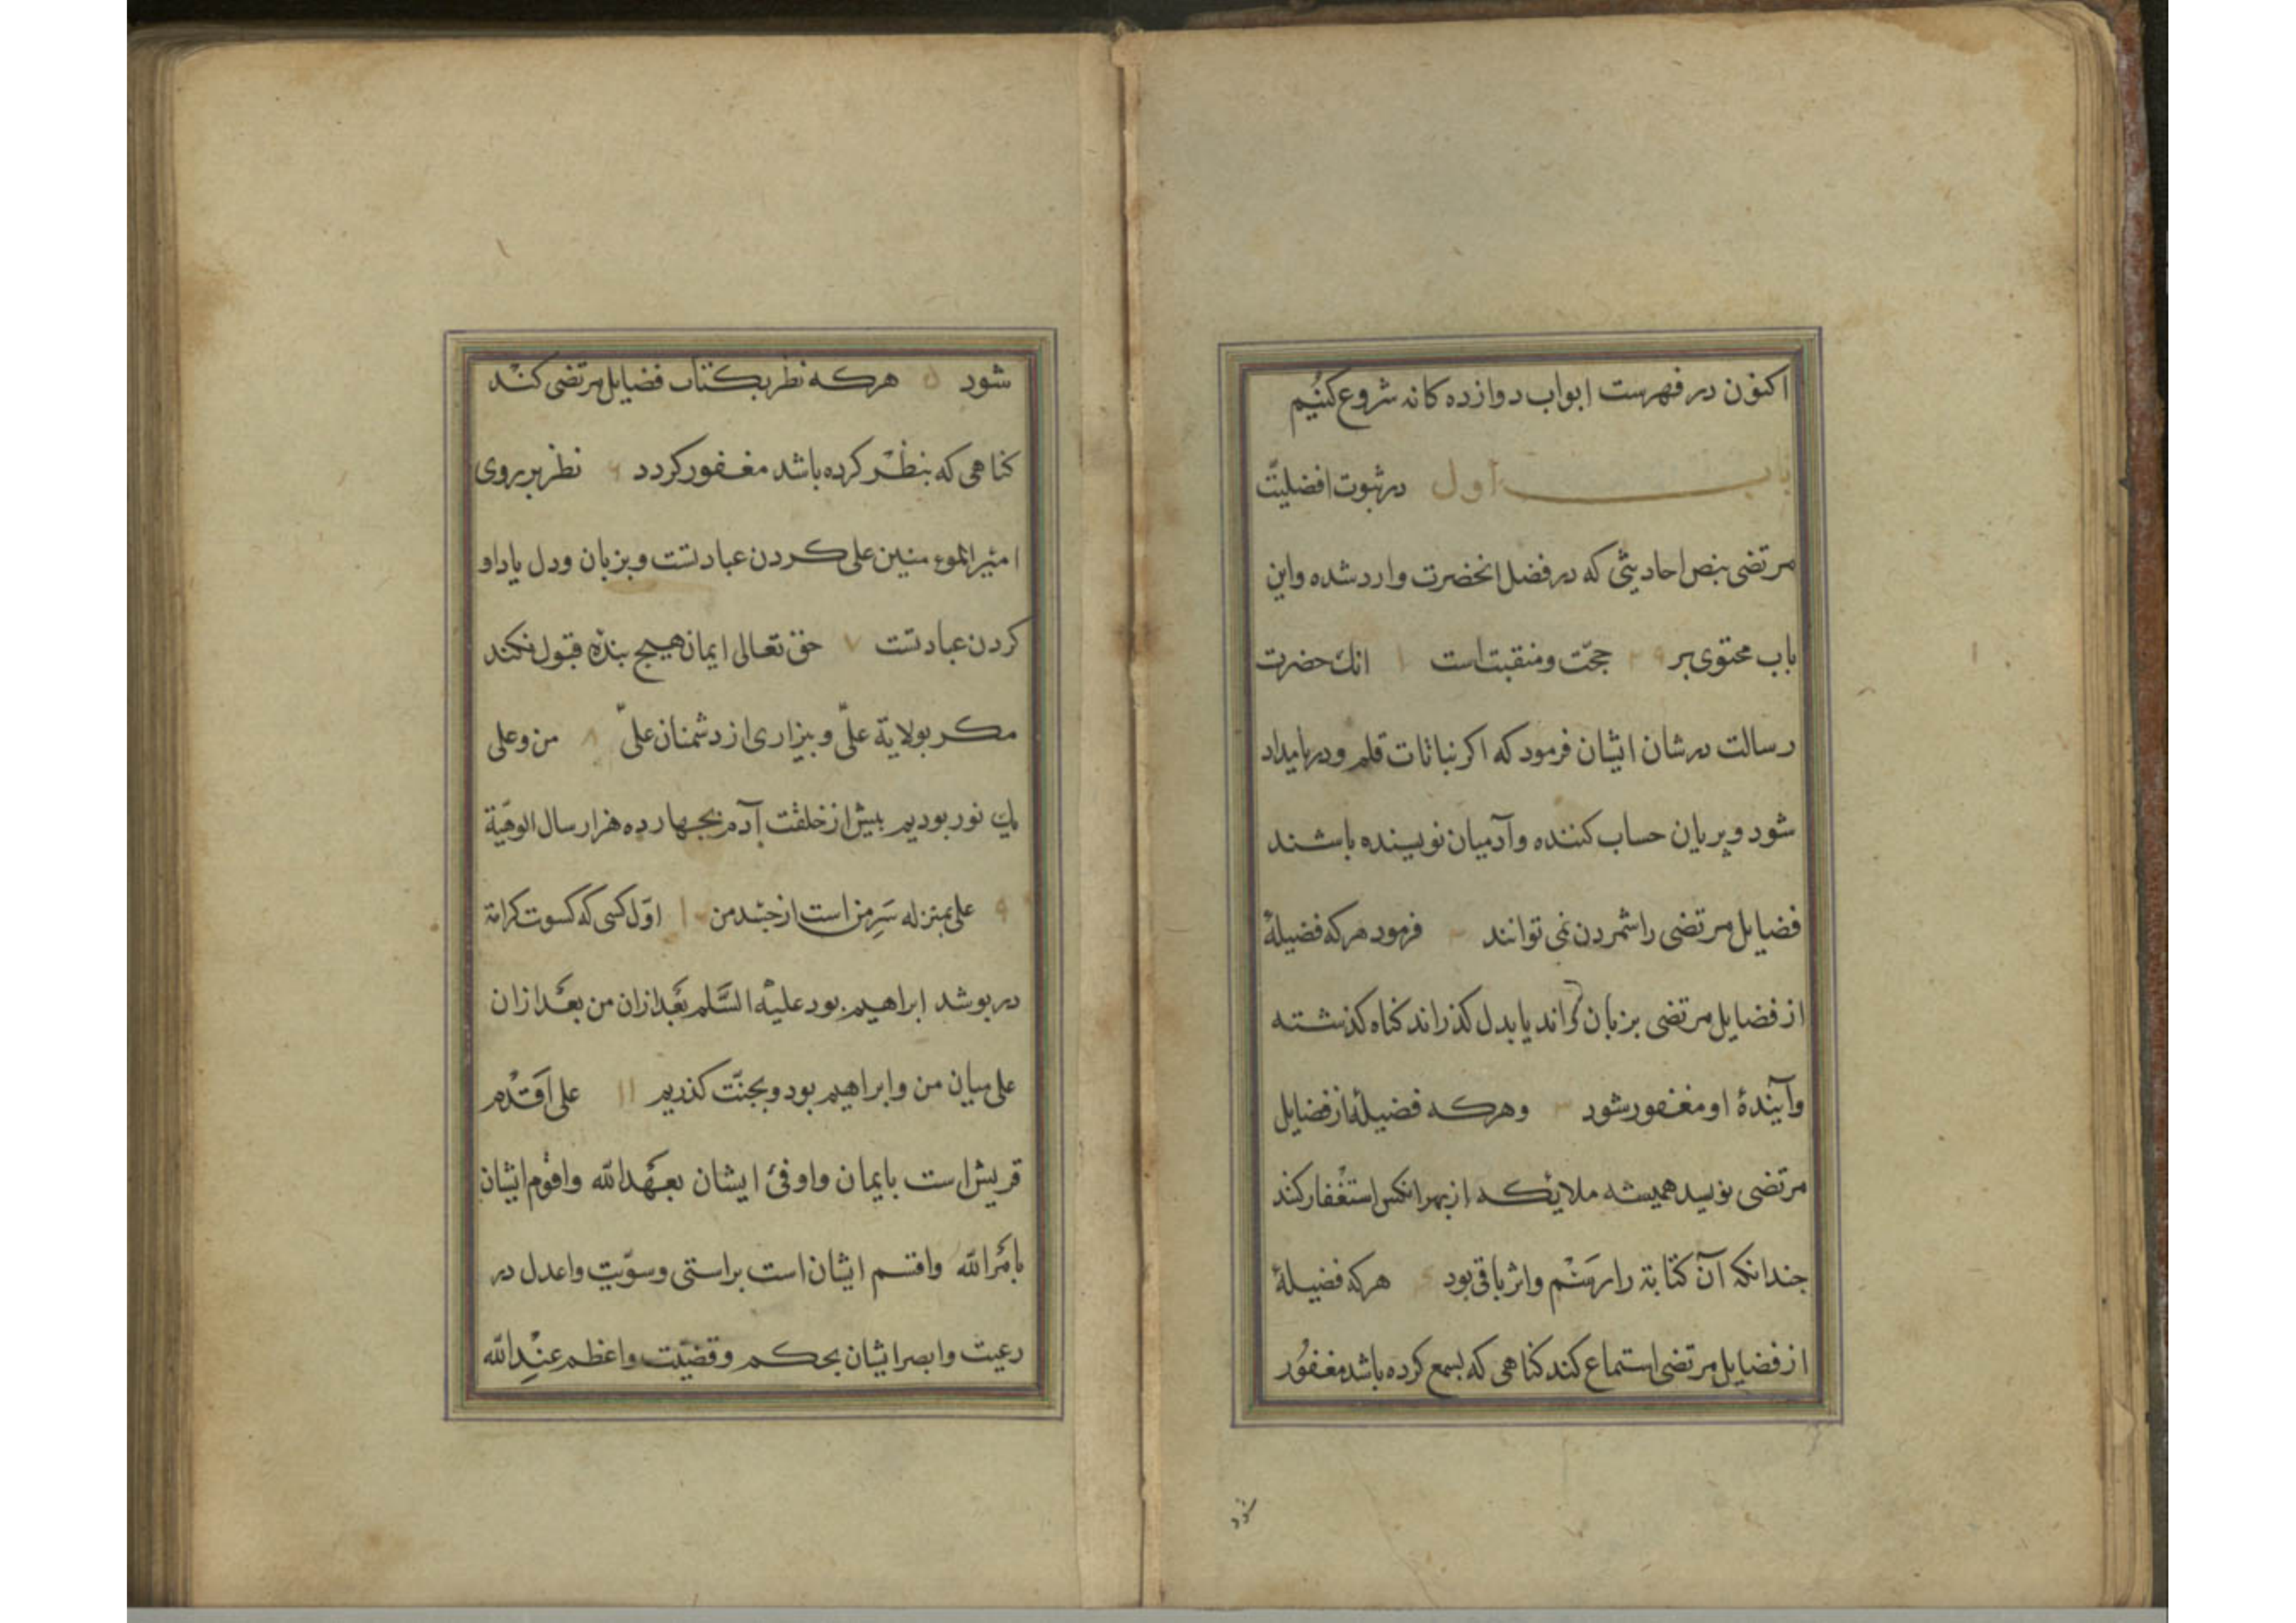 اکنون در فهرست ابواب دوازده کانه شروع کنیم
باب اول در ثبوت افضلیّت
مرتضی بنص احادیثی که در فضل انحضرت وارد شده واین
باب محتوی بر ۲۹ حجّت و منقبت است ۱ انك حضرت
رسالت در شان ایشان فرمود که اکر نباتات قلم و دریا مداد
شود و پریان حساب کننده وآدمیان نویسنده باشند
فضایل مرتضی را شمردن نمی توانند ۲ فرمود هرکه فضیلهٔ
از فضایل مرتضی بزبان راند یا بدل کذراند کناه کذشته
وآیندهٔ او مغفور شود ۳ وهرکه فضیلهٔ از فضایل
مرتضی نویسد همیشه ملایکه از بهر انکس استغفار کند
جندانکه آن کتابة را رسم واثر باقی بود ۴ هرکه فضیلهٔ
از فضایل مرتضی استماع کند کناهی که بسمع کرده باشد مغفور
شود
شود ۵ هرکه نظر بکتاب فضایل مرتضی کند
کناهی که بنظر کرده باشد مغفور کردد ۶ نظر بر روی
امیر المومنین علی کردن عبادتست و بزبان ودل یاد او
کردن عبادتست ۷ حق تعالی ایمان هیج بنده قبول نکند
مکر بولایة علیّ و بیزاری از دشمنان علیّ ۸ من وعلی
یك نور بودیم بیش از خلقت آدم بجهارده هزار سال الوهیّة
۹ علی بمنزله سَرِ من است از جسد من ۱۰ اوّل کسی که کسوت کرامة
در بوشد ابراهیم بود علیه السَّلم بعد ازان من بعد ازان
علی میان من وابراهیم بود و بجنّت کذریم ۱۱ علی اَقدم
قریش است بایمان واوفیٔ ایشان بعهد الله واقوم ایشان
بامر الله واقسم ایشان است براستی وسوّیت واعدل در
رعیت وابصر ایشان بحکم وقضیّت واعظم عند الله